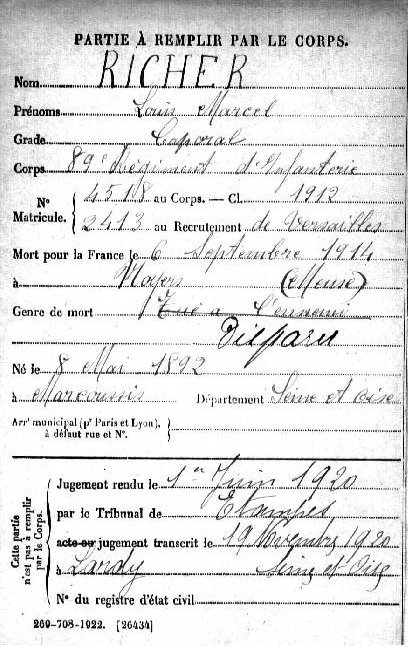 PARTIE À REMPLIR PAR LE CORPS.
Nom RICHER
Prénoms Louis Marcel
Grade Caporal
Corps 89e Régiment d'Infanterie
N° Matricule. 4518 au Corps. — Cl. 1912
2413 au Recrutement de Versailles
Mort pour la France le 6 Septembre 1914
à (Meuse)
Genre de mort Tué à l'ennemi
Disparu
Né le 8 Mai 1892
à Marcoussis Département Seine et Oise
Arrt municipal (pr Paris et Lyon), à défaut rue et N°.
Cette partie n'est pas à remplir par le Corps.
Jugement rendu le 1er Juin 1920
par le Tribunal de Etampes
acte ou jugement transcrit le 19 Novembre 1920
à Lardy Seine et Oise
N° du registre d'état civil
269-708-1922. [26434]